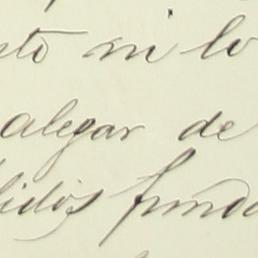 sto ni lo
alegar de
lidos funda